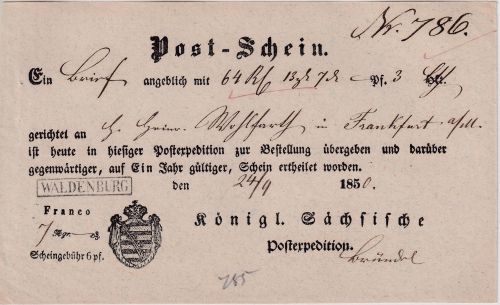 Nr. 786.
Post-Schein.
Ein Brief angeblich mit 64 Rf 13 7 Pf. 3
gerichtet an H. Heinr. Wohlfarth in Frankfurt a/M.
ist heute in hiesiger Postexpedition zur Bestellung übergeben und darüber
gegenwärtiger, auf Ein Jahr gültiger, Schein ertheilet worden.
WALDENBURG
den 24/9 1850.
Franco
7 Ngr.
Scheingebühr 6 pf.
Königl. Sächsische
Postexpedition.
Bründel
785